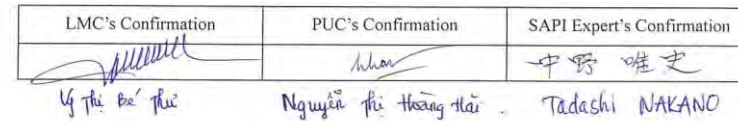 LMC's Confirmation PUC's Confirmation SAPI Expert's Confirmation
中野 唯史
Lý Thị Bé Thư Nguyễn Thị Hoàng Hải . Tadashi NAKANO